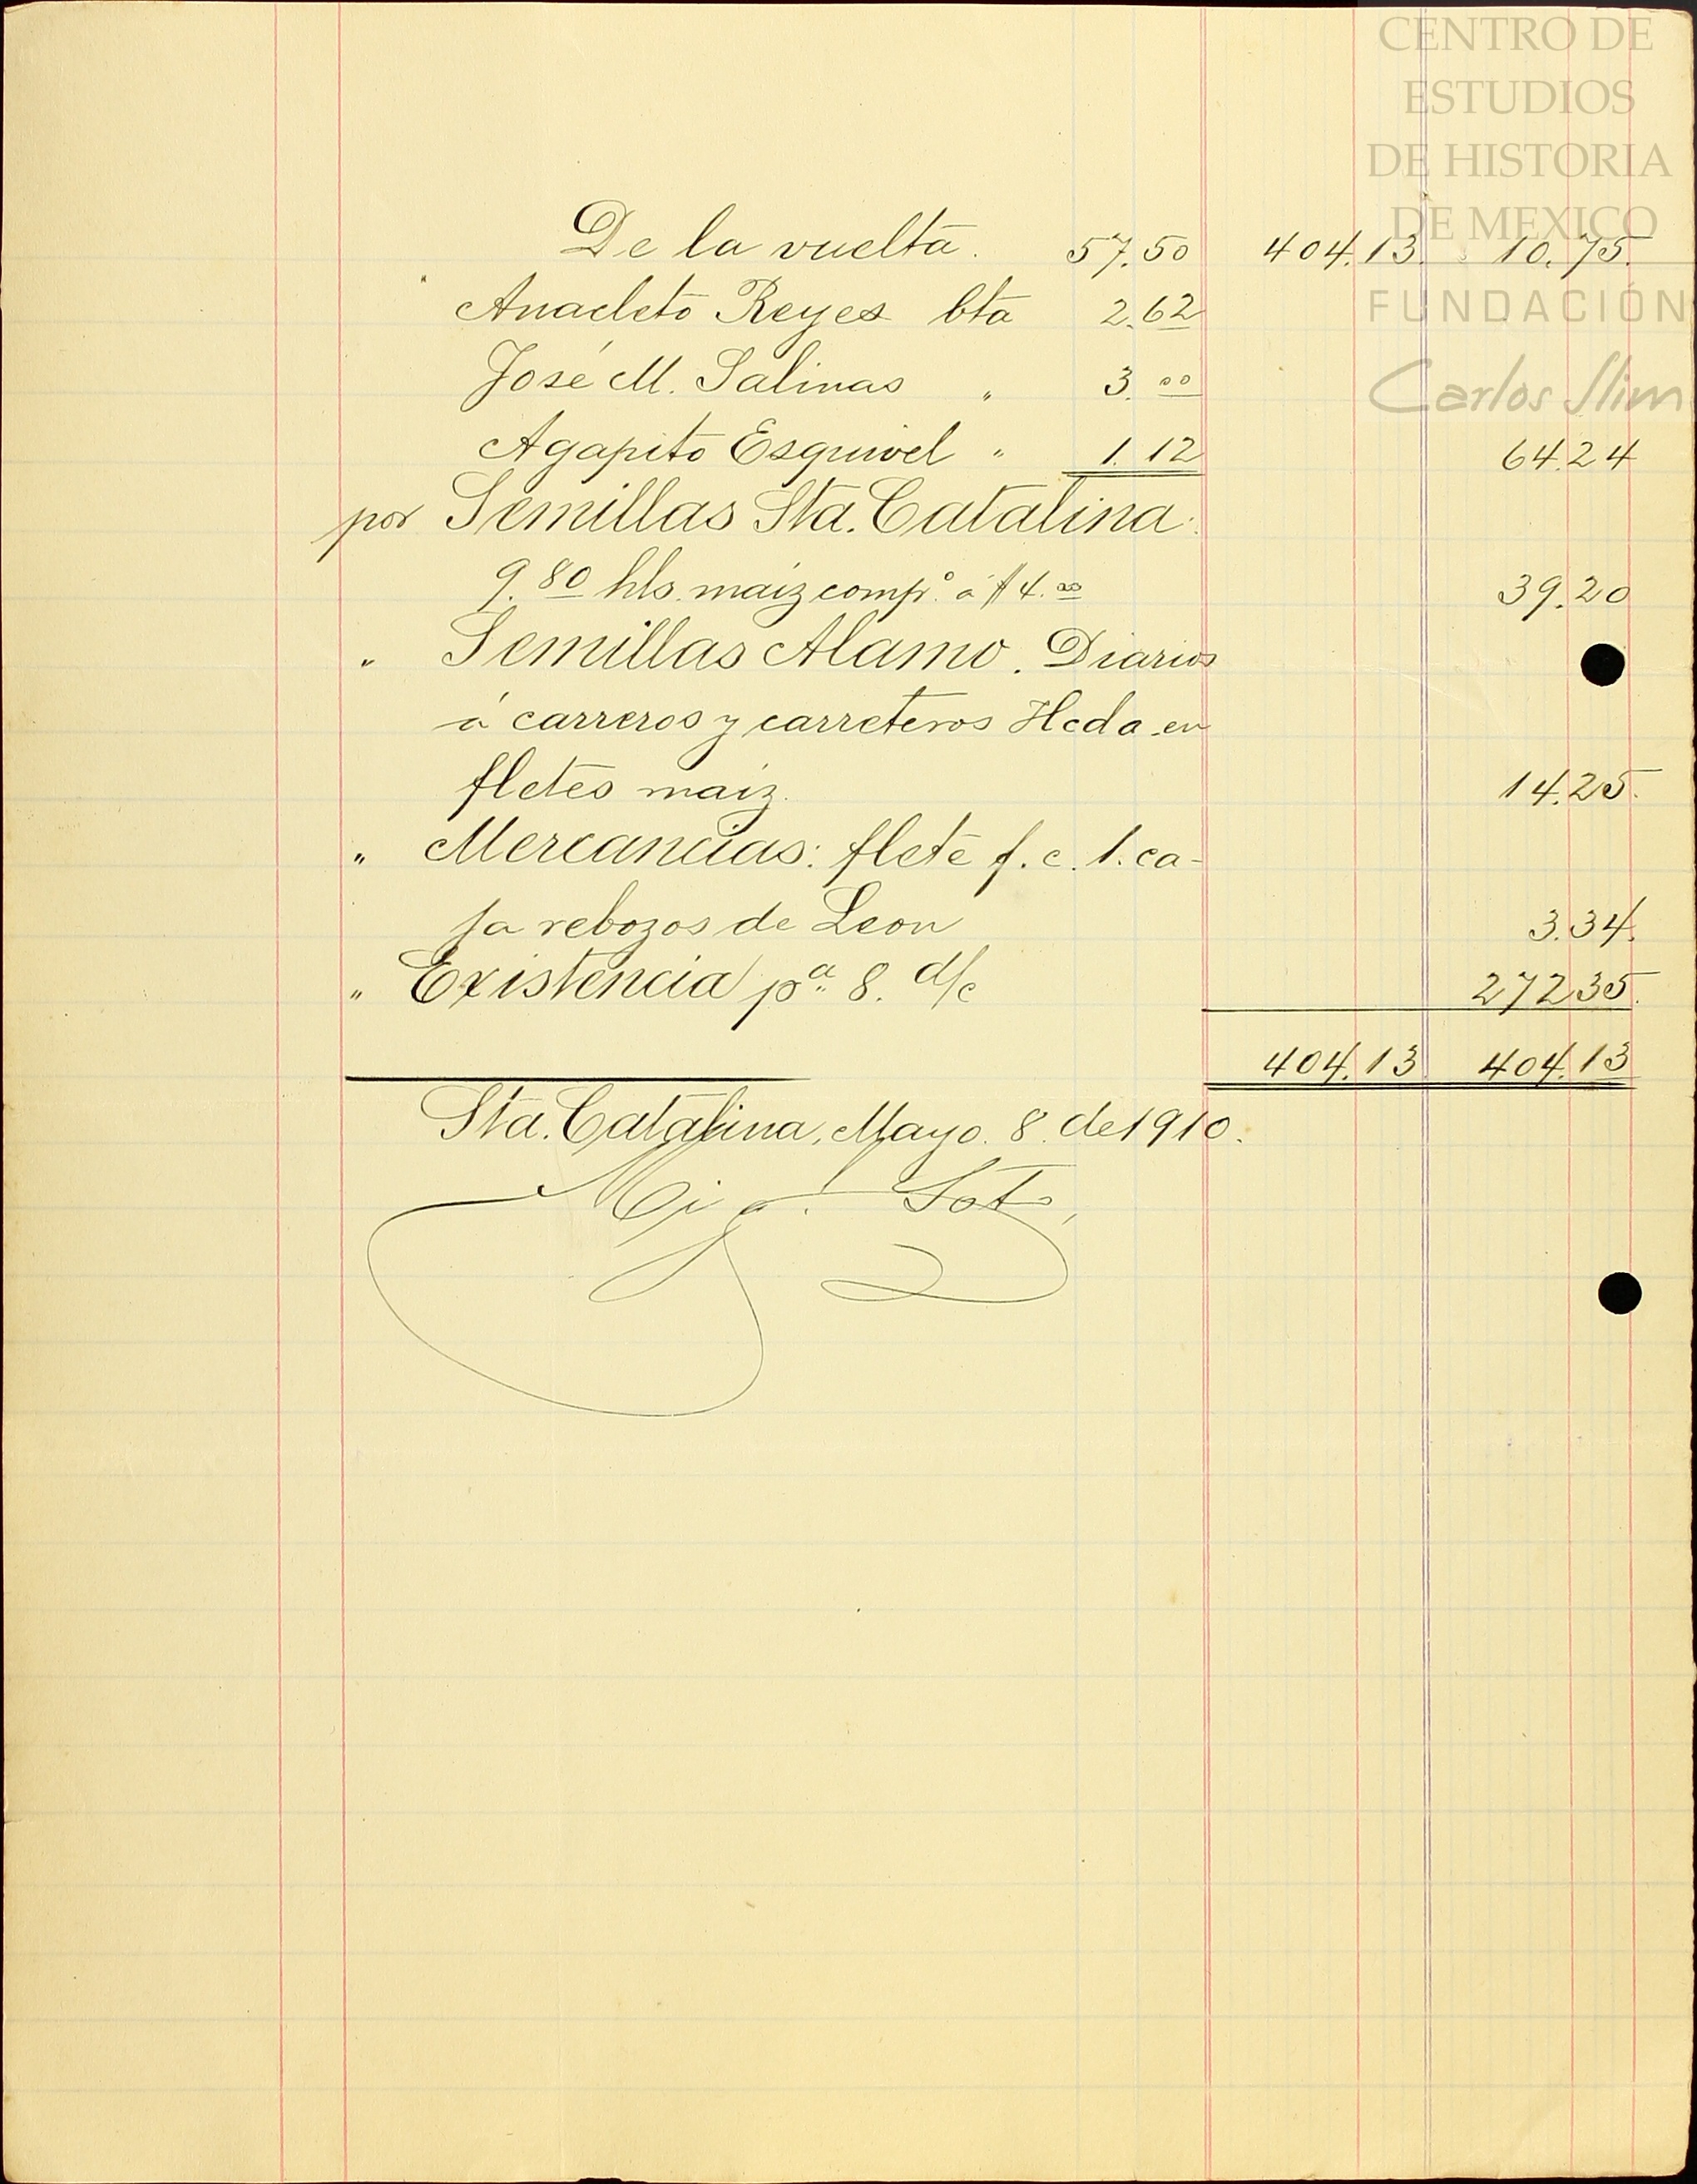 CENTRO DE
ESTUDIOS
DE HISTORIA
DE MEXICO
FUNDACIÓN
Carlos Slim
De la vuelta. 57.50 404.13. 10.75.
Anacleto Reyes bta 2.62
José M. Salinas " 3.00
Agapito Esquivel " 1.12 64.24
por Semillas Sta. Catalina:
9.80 hls. maiz compº á $4.00 39.20
" Semillas Alamo. Diarios
á carreros y carreteros Hcda. en
fletes maiz. 14.25.
" Mercancias: flete f.c. 1. ca-
ja rebozos de Leon 3.34.
" Existencia pª 8. d/c 272.35.
404.13 404.13
Sta. Catalina, Mayo. 8. de 1910.
Migl. Soto